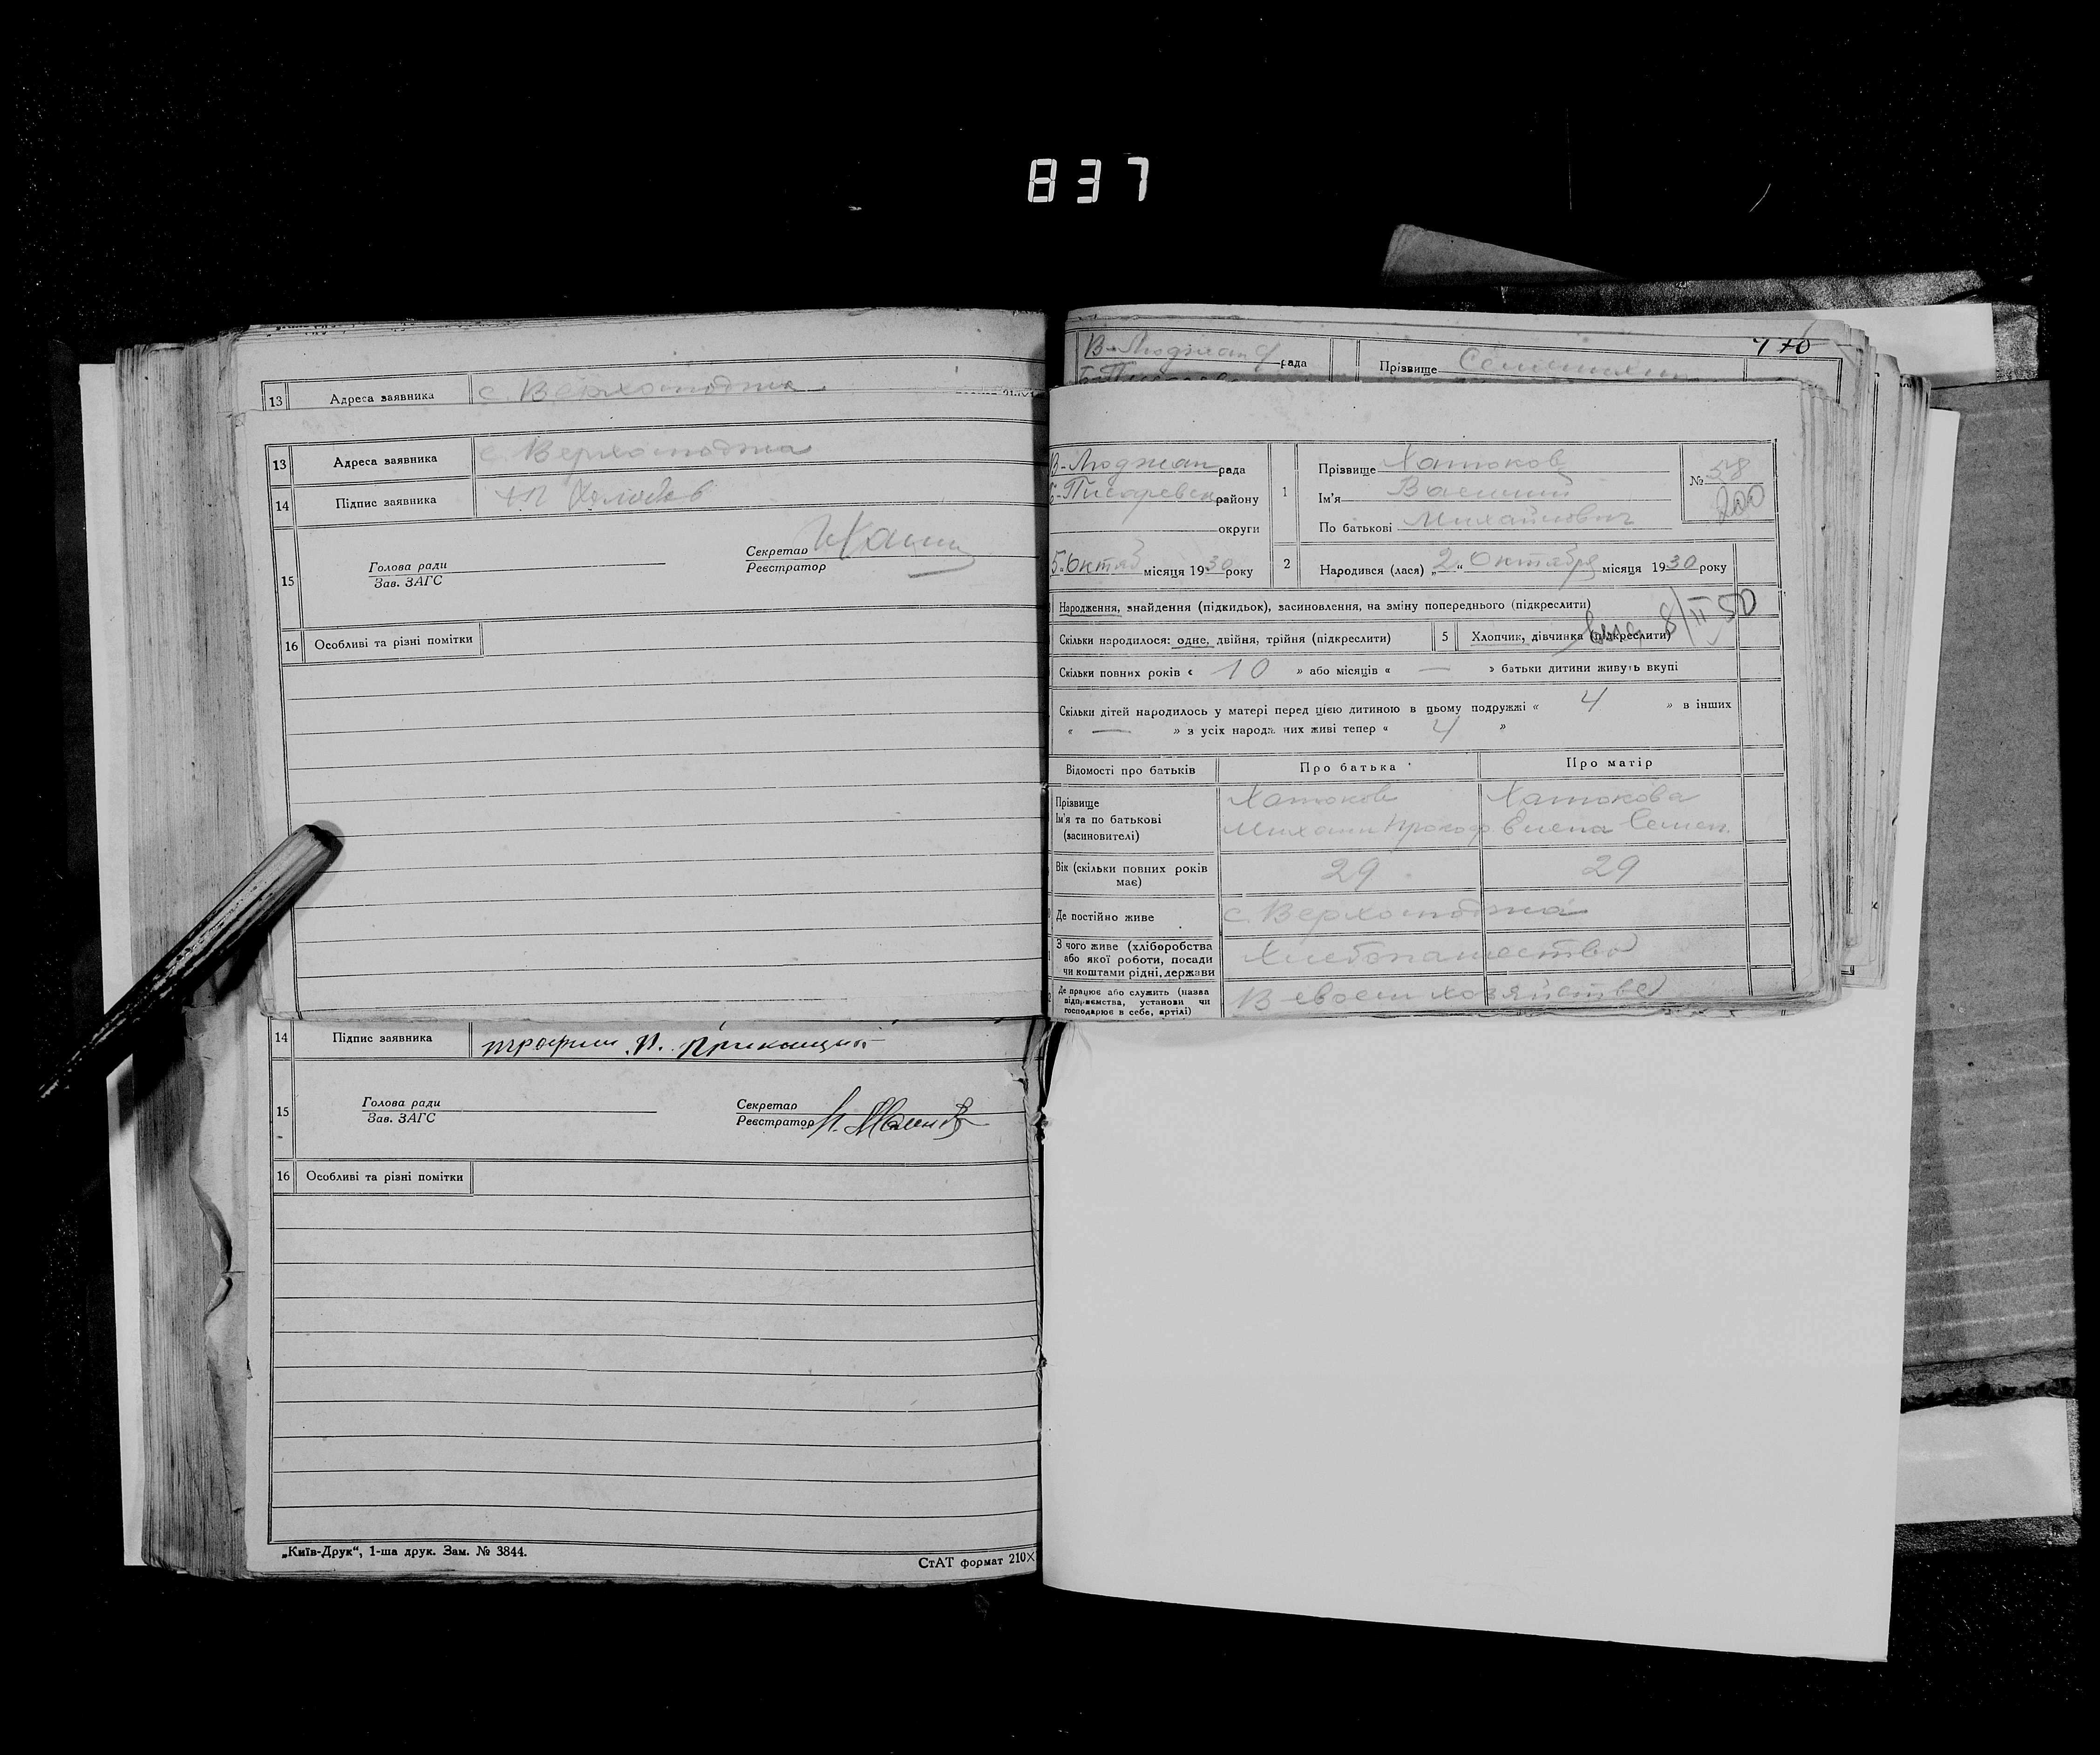 837
13 Адреса заявника с. Верхолюджа
13 Адреса заявника с. Верхолюджа
14 Підпис заявника
Секретар
Голова ради Реєстратор
15 Зав. ЗАГС
16 Особливі та різні помітки
14 Підпис заявника трофим П.
Голова ради Секретар
15 Зав. ЗАГС Реєстратор
16 Особливі та різні помітки
„Київ-Друк“, 1-ша друк. Зам. № 3844. СтАТ формат 210×
В-Люджан рада Прізвище
В-Люджан рада 1 Прізвище Хатюков № 58
Б-Писаревск району Ім'я Василий 200
округи По батькові Михайлович
5 Октяб місяця 1930 року 2 Народився (лася) „2“ Октября місяця 1930 року
Народження, знайдення (підкидьок), засиновлення, на зміну попереднього (підкреслити)
8/II 50
Скільки народилося: одне, двійня, трійня (підкреслити) 5 Хлопчик, дівчинка (підкреслити)
Скільки повних років « 10 » або місяців « — » батьки дитини живуть вкупі
Скільки дітей народилось у матері перед цією дитиною в цьому подружжі « 4 » в інших
« — » з усіх народж них живі тепер « 4 »
Відомості про батьків Про батька Про матір
Прізвище Хатюков Хатюкова
Ім'я та по батькові Михаил Прокоф. Елена Семен.
(засиновителі)
Вік (скільки повних років має) 29 29
Де постійно живе с. Верхолюджа
З чого живе (хліборобства
або якої роботи, посади Хлебопашество
чи коштами рідні, держави
Де працює або служить (назва
відприємства, установи чи В своем хозяйстве
господарює в себе, артілі)